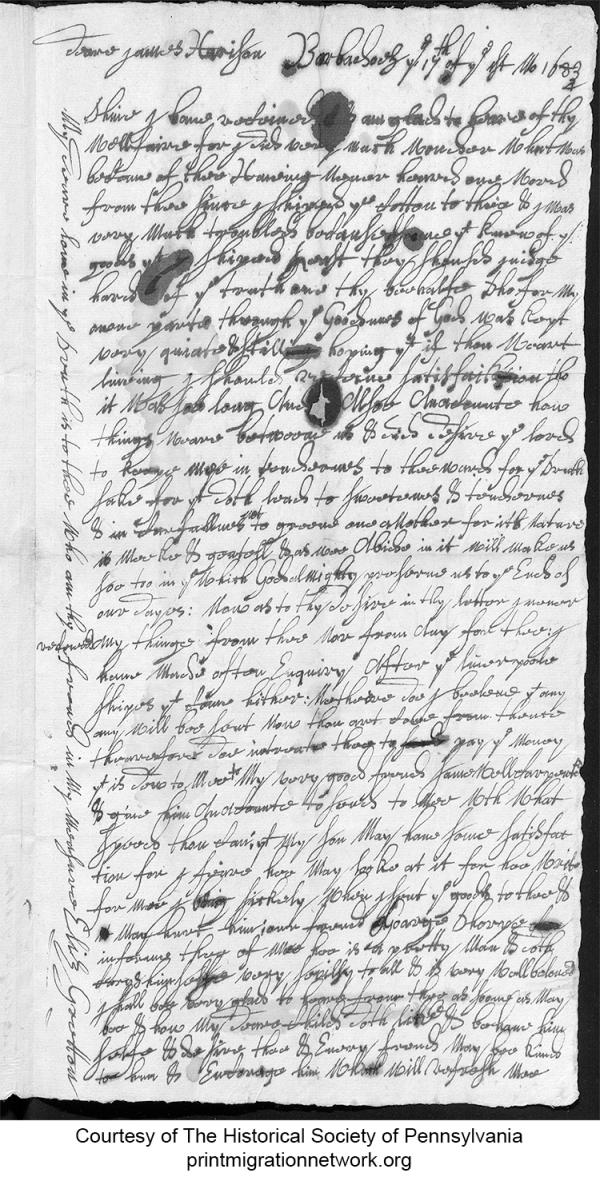 Deare James Harison Barbadoes ye 17th of ye 1st Mo 1683/4
Thine I haue receiued & am glad to heare of thy
Wellfaire for I did very much wonder what was
become of thee Haueing Neuer heared one Word
from thee since I shiped ye Cotton to thee & I Was
very Much troubled because some yt knew of ye
goods yt I shiped least they should judge
hard of ye truth and thy seruants Tho for My
owne parte through ye Goodnes of God Was kept
very quiate & still hoping yt if thou Weart
liueing I should receiue satisfaction tho
it Was soe long And Alsoe Anaccounte how
things Weare betweene us & did desire ye lord
to keepe Mee in tendernes to thee ward for ye Truths
sake for yt doth lead to sweetenes & tendernes
& in to greeue one Another for its Nature
is Meeke & gentell & as wee Abide in it will make us
soe too in ye Which God Almighty preserue us to ye End of
our dayes: Now as to thy desire in thy letter I neuer
receiued Any things from thee Nor from Any for thee: I
haue Made often Enquiry After ye liuerpoole
ships yt Came hither: Neather doe I beeleue yt any
any Will bee sent Now thou art Come from thence
theareefore doe intreate thee to pay ye Money
yt is dew to Mee to My very good freind Samuell Carpenter
& giue him Anaccounte to send to Mee With What
speed thou Can: yt My son May haue some satisfac
tion for I feare hee May looke at it for hee
for Mee I being sickely When I sent ye goods to thee &
May hurt him: our freind George Thorpe
informs thee of Mee hee is a pretty Man & doth
cary himselfe very soully to all & is very Well beloued
I shall bee very glad to heare from thee as soone as May
bee & how My Deare Child doth like & behaue him
selfe & desire thee & Euery freind May bee kind
to him & Encorage him Which Will refresh Mee
My deare loue in ye truth is to thee Who am thy freind in My Measure Eliz Gretton
Courtesy of The Historical Society of Pennsylvania
printmigrationnetwork.org